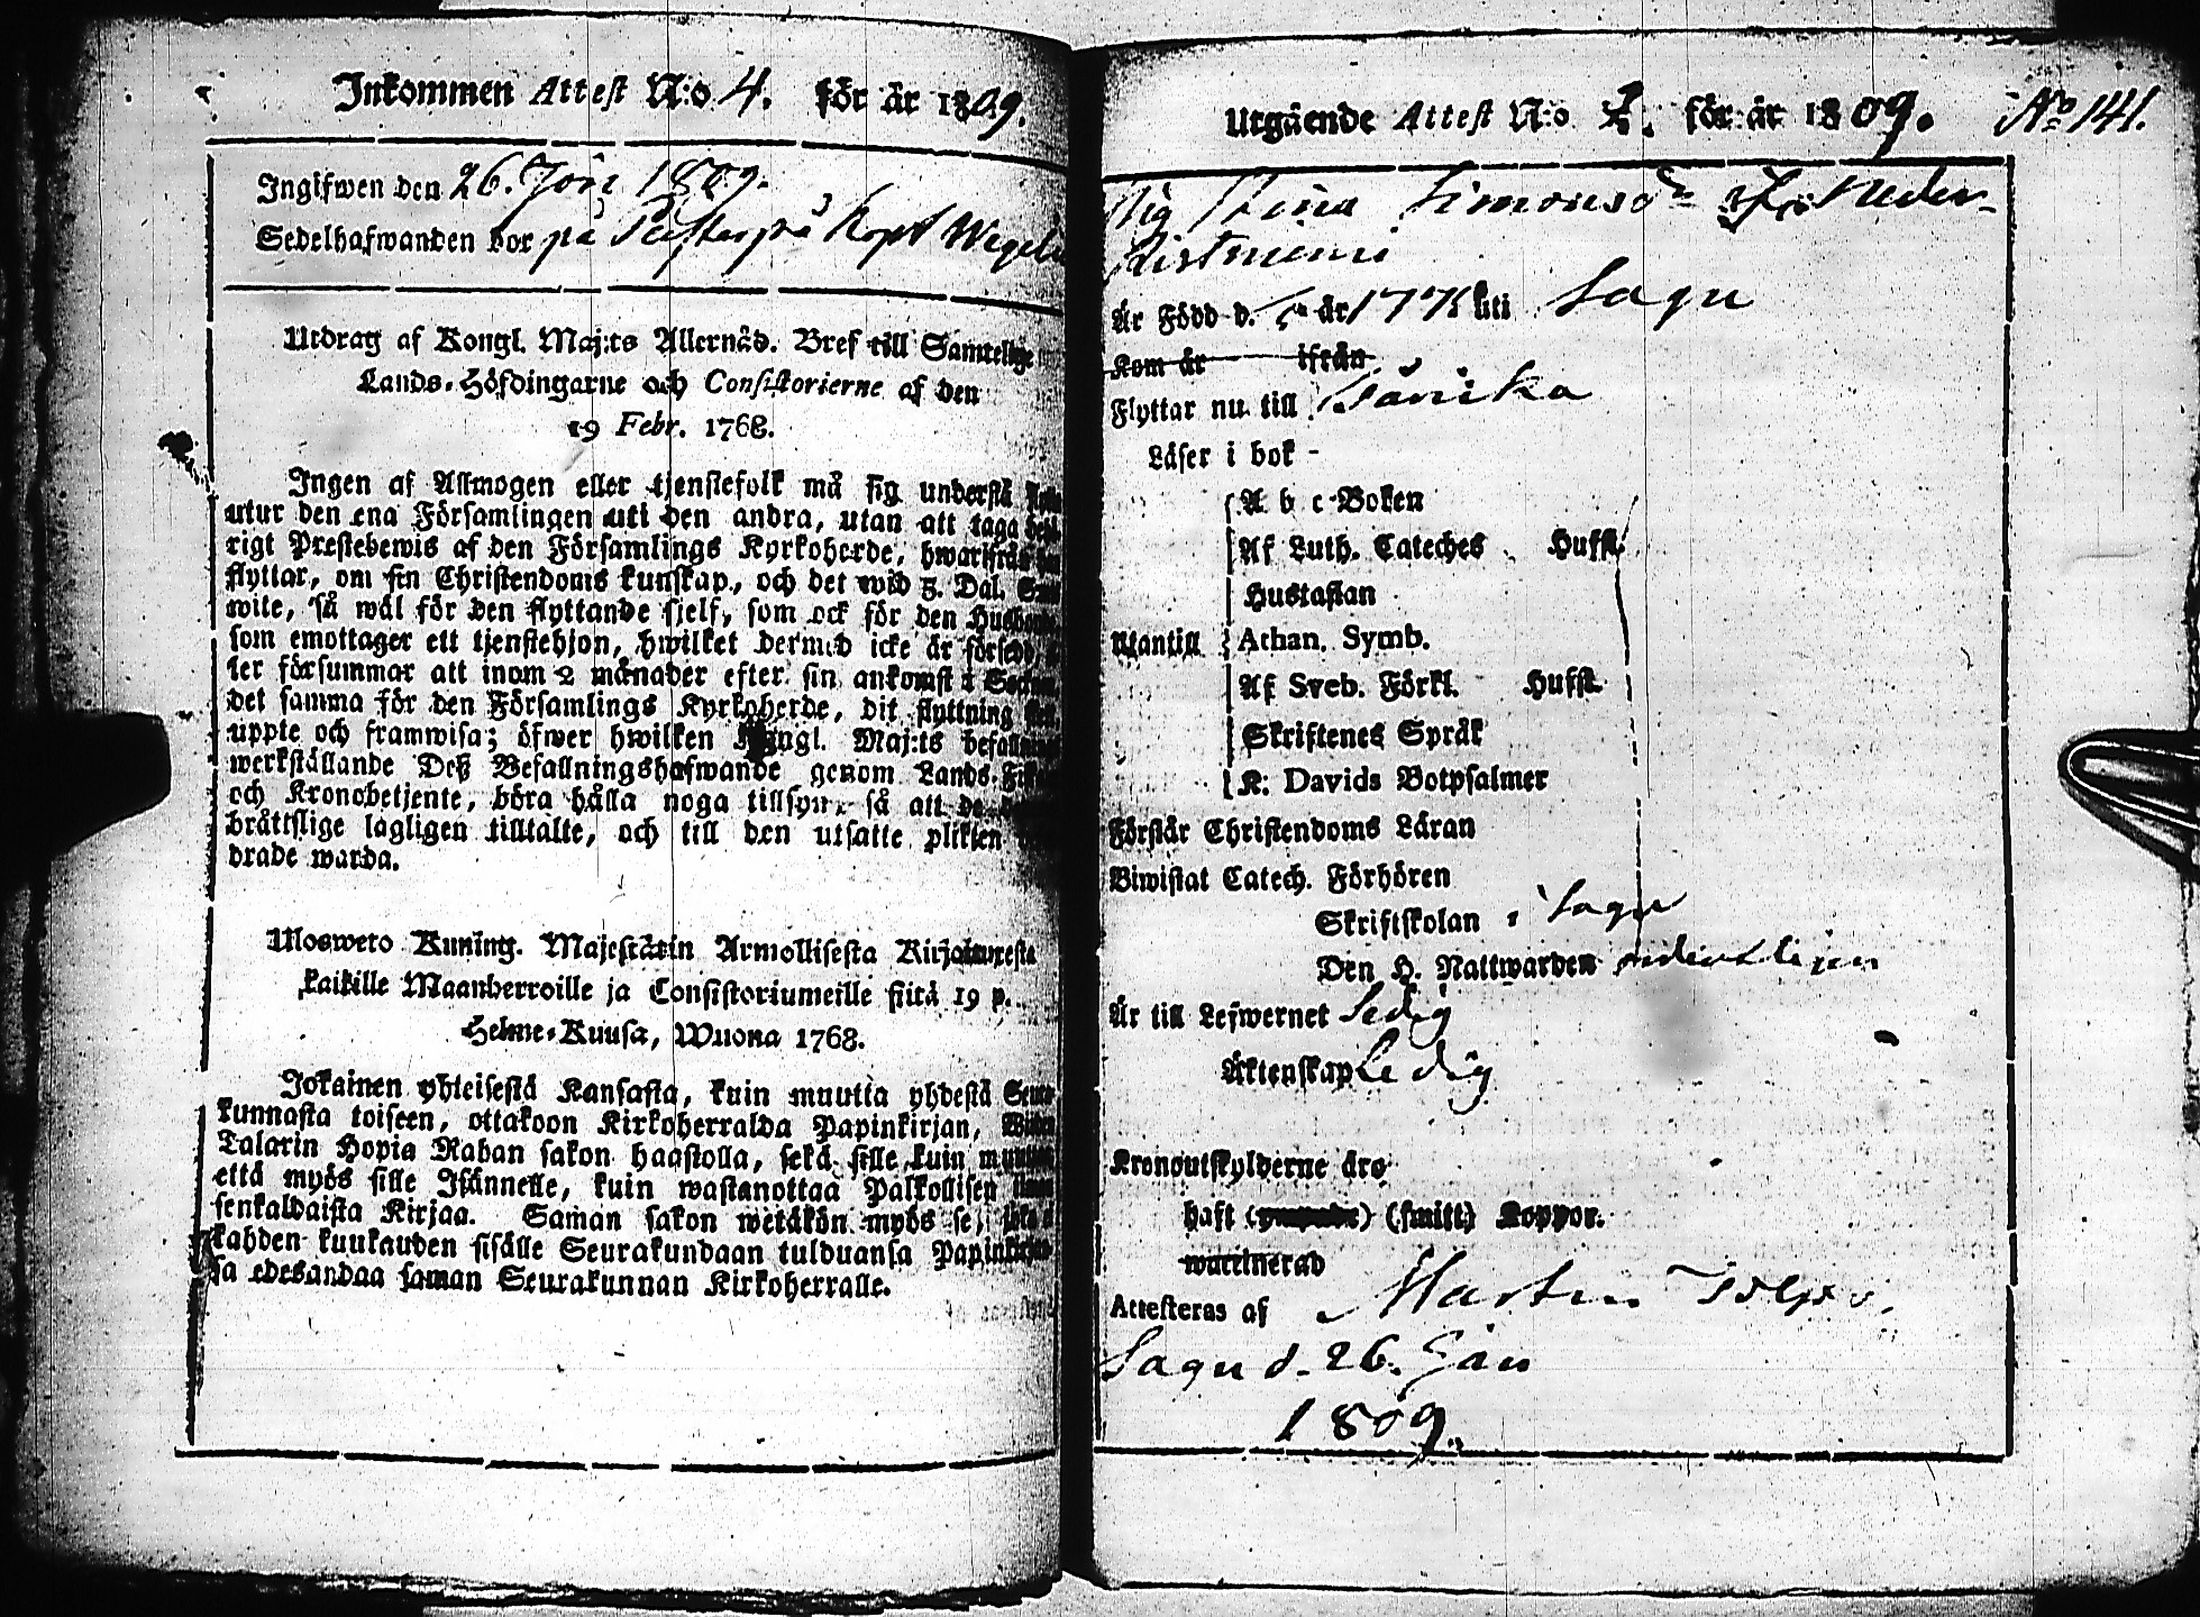 Inkommen Attest N:o 4. för år 1809.
Ingifwen den 26. 1809.
Sedelhafwanden bor på på Kopt
Utdrag af Kongl. Maj:ts Allernåd. Bref till Samtelige
Lands-Höfdingarne och Consistorierne af den
19 Febr. 1768.
Ingen af Allmogen eller tjenstefolk må sig understå
utur den ena Församlingen uti den andra, utan att taga
rigt Prestebewis af den Församlings Kyrkoherde, hwarifrån
flyttar, om sin Christendoms kunskap, och det wid 3. Dal.
wite, så wäl för den flyttande sjelf, som ock för den
som emottager ett tjenstehjon, hwilket dermed icke är försedt,
ler försummar att inom 2 månader efter sin ankomst i
det samma för den Församlings Kyrkoherde, dit flyttning
uppte och framwisa; öfwer hwilken Kongl. Maj:ts
werkställande Deß Befallningshafwande genom Lands-
och Kronobetjente, böra hålla noga tillsyn, så att de
bråttslige lagligen tilltalte, och till den utsatte plikten
drade warda.
Ulosweto Kuning. Majestätin Armollisesta Kirjoituxesta
kaikille Maanherroille ja Consistoriumeille siitä 19 p.
Helme-Kuusa, Wuona 1768.
Jokainen yhteisestä Kansasta, kuin muutta yhdestä Seura-
kunnasta toiseen, ottakoon Kirkoherralda Papinkirjan,
Talarin Hopia Rahan sakon haastolla, sekä sille kuin
että myös sille Isännelle, kuin wastanottaa Palkollisen
senkaldaista Kirjaa. Saman sakon wetäkön myös se,
kahden kuukauden sisälle Seurakundaan tulduansa
sa edesandaa saman Seurakunnan Kirkoherralle.
Utgående Attest N:o 2. för år 1809. No 141.
Stina Simonsdr Neder-
Ristniemi
Är Född d. år 177 uti Sagu
Kom år ifrån
Flyttar nu till
Läser i bok -
A b c-Boken
Af Luth. Cateches Hufst.
Hustaflan
Utantill Athan. Symb.
Af Sveb. Förkl. Hufst.
Skriftenes Språk
K: Davids Botpsalmer
Förstår Christendoms Läran
Biwistat Catech. Förhören
Skriftskolan i Sagu
Den H. Nattwarden
Är till Lefwernet Sedig
Äktenskap Ledig
Kronoutskylderne äro
haft (ympade) (smitt) Koppor.
waccinerad
Attesteras af Martin
Sagu d. 26. Jan
1809.